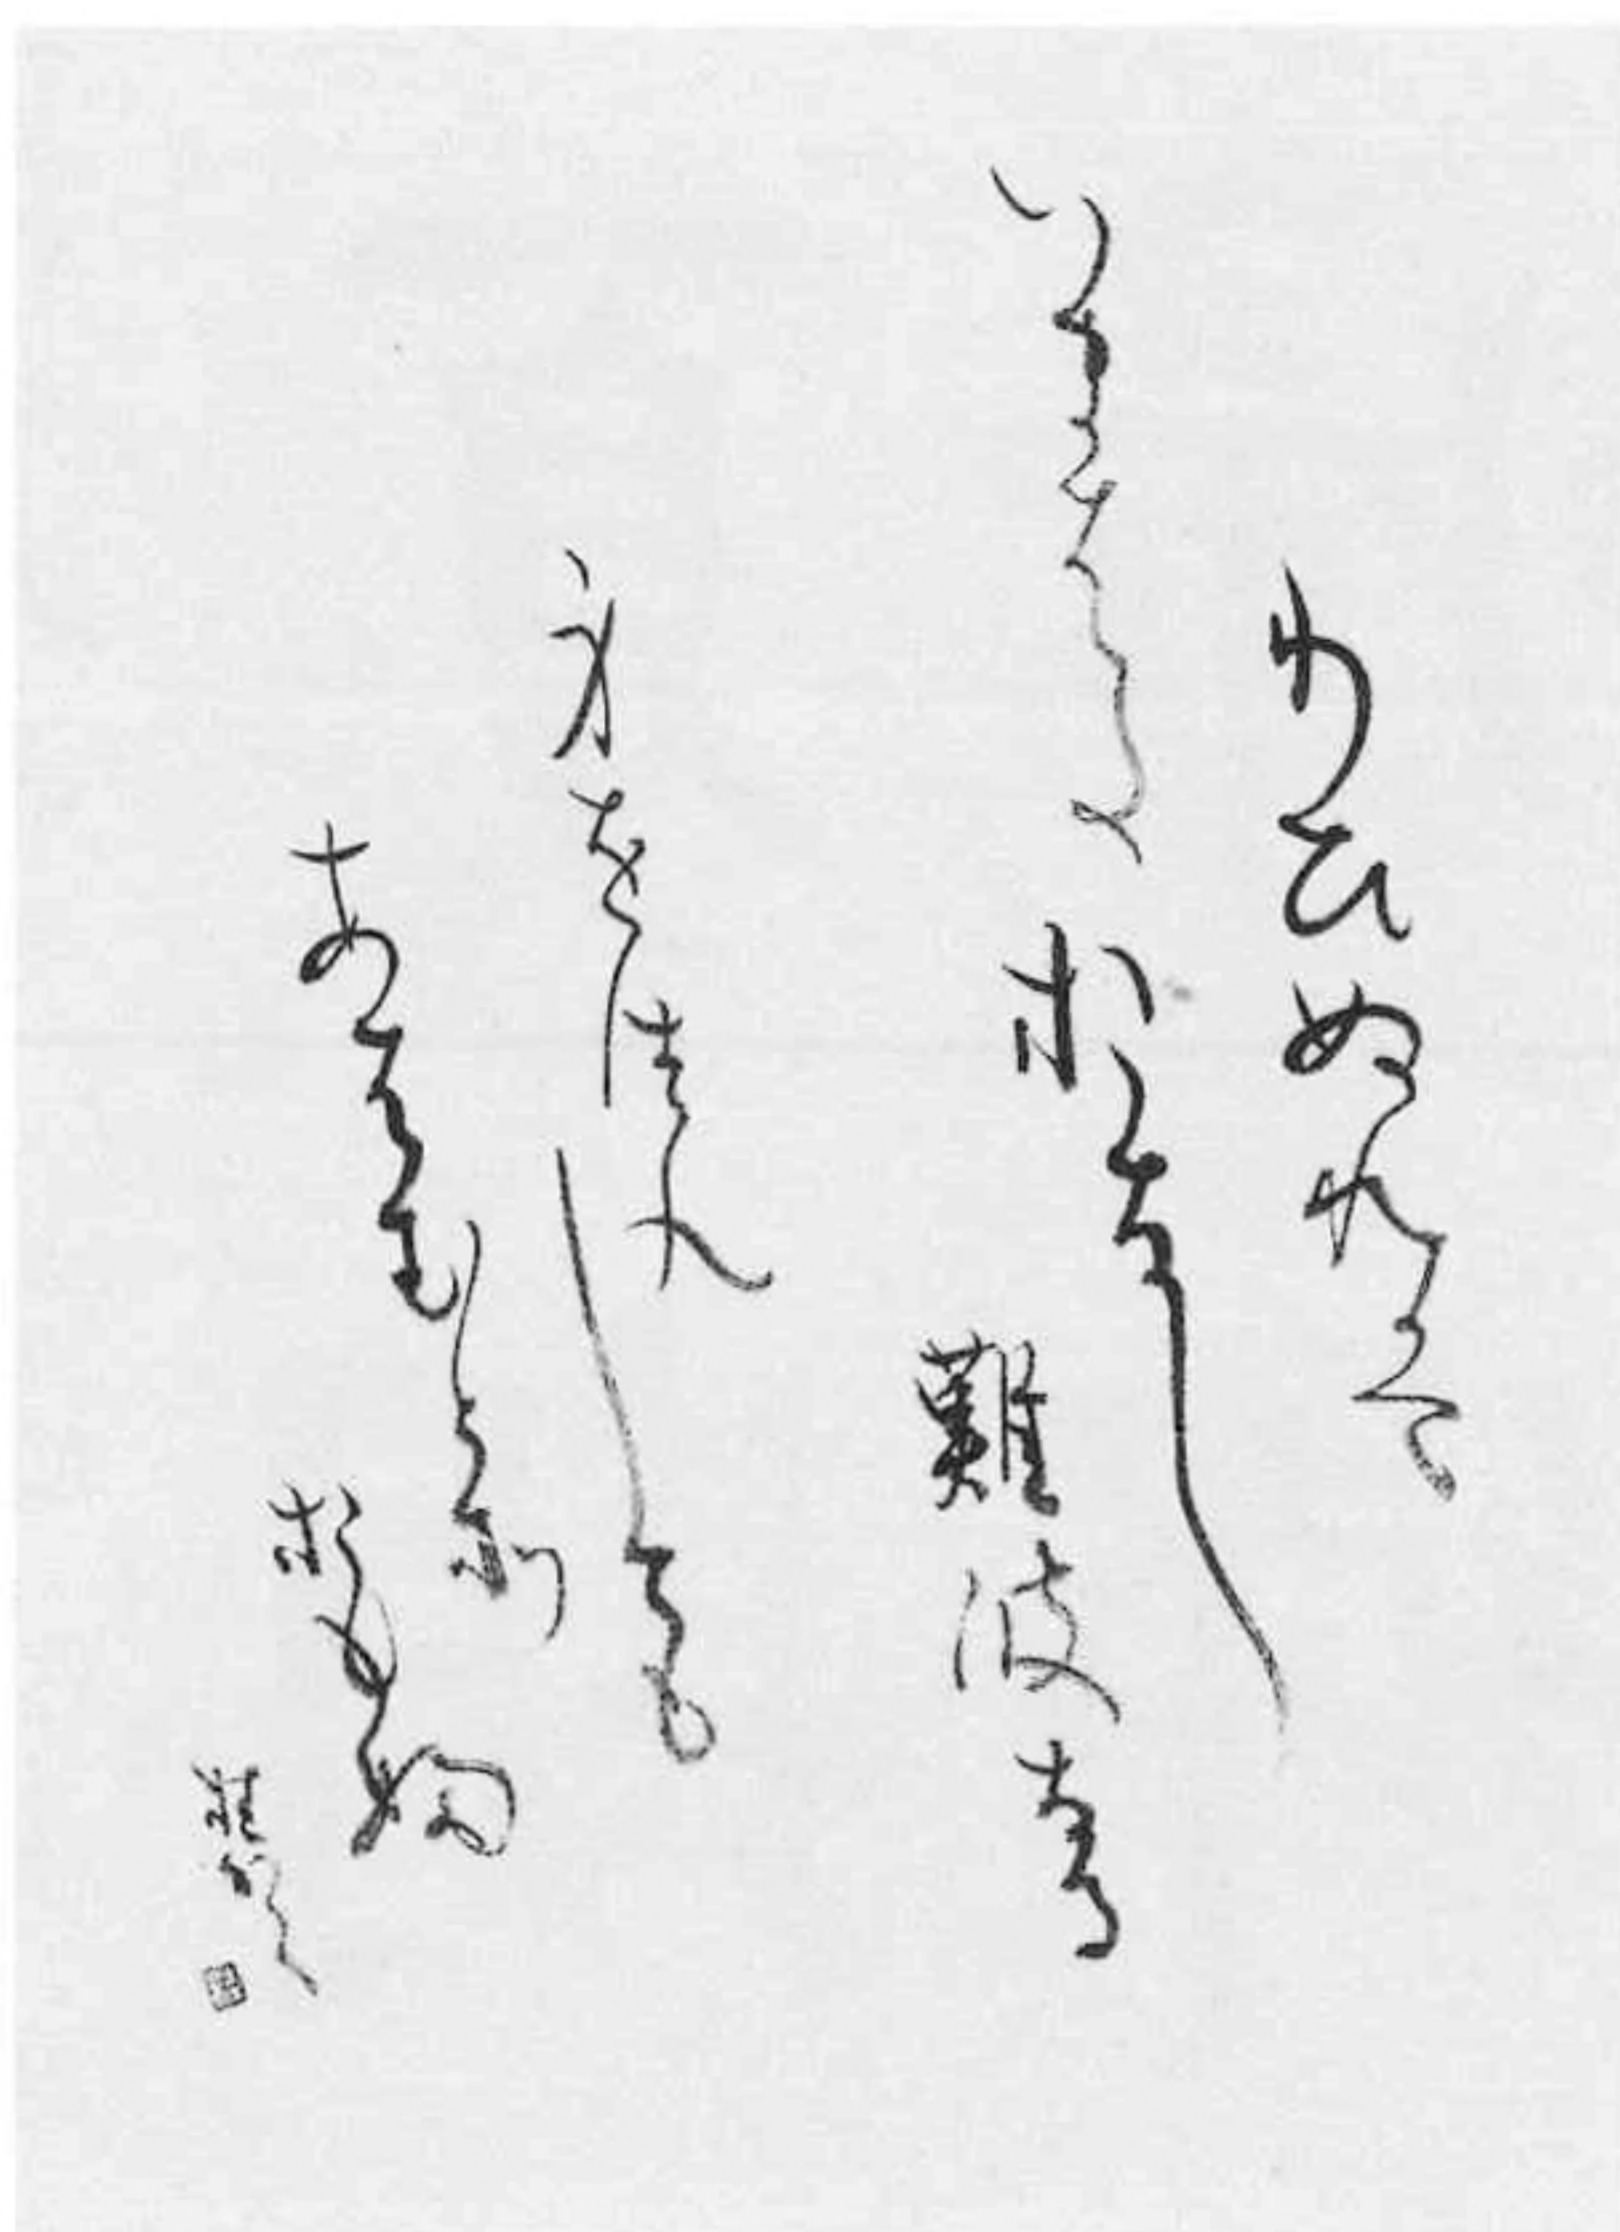 わひぬれは
いまはたおなし
難波なる
身をつく
しても
あはむとそ
おもふ